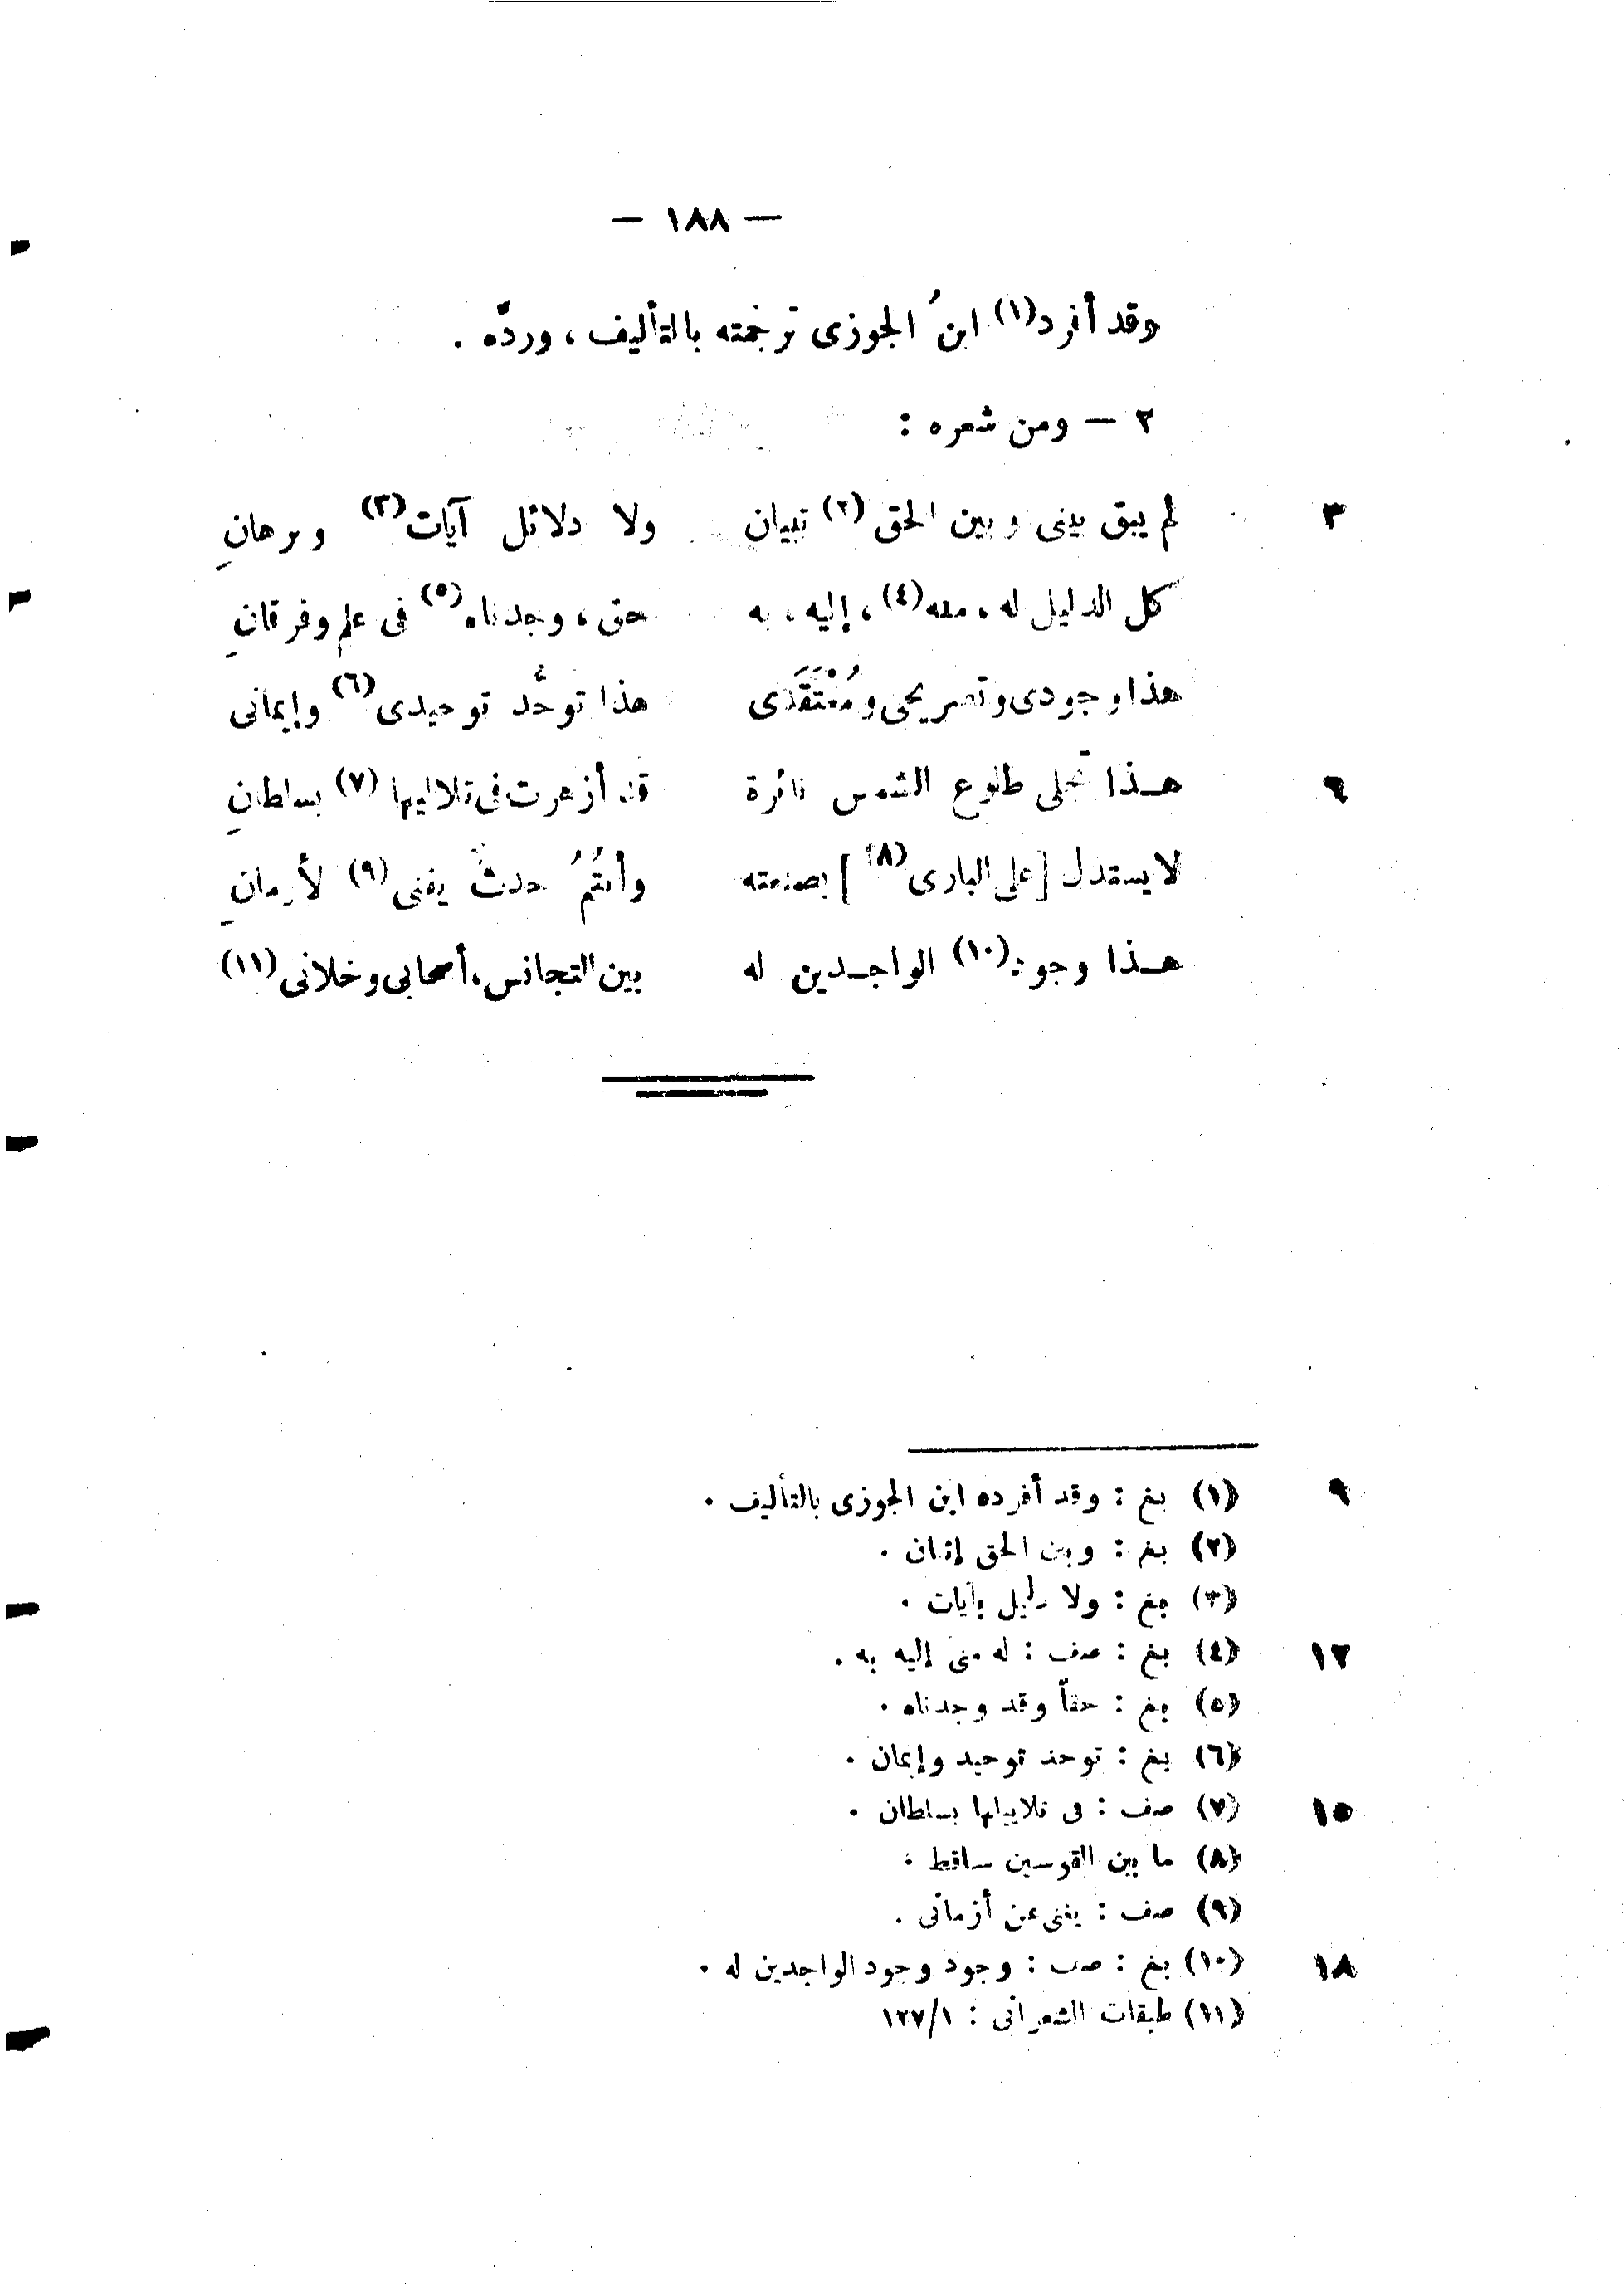 — ١٨٨ —
وقد أفرد(١) ابنُ الجوزى ترجمته بالتأليف ، وردّه .
٢ — ومن شعره :
٣ لم يبق بينى وبين الحق (٢) تبيان ولا دلائل آيات(٣) وبرهانِ
كل الدليل له ، منه(٤) ، إليه ، به حق ، وجدناه(٥) فى علم وفرقانِ
هذا وجودى وتصريحى ومُعْتَقَدَى هذا توحُّد توحيدى(٦) وإيمانى
٦ هـذا تجلى طلوع الشمس نائرة قد أزهرت فى تلاليها (٧) بسلطانِ
لا يستدل [على البارى(٨)] بصنعته وأنتُمُ حدثٌ يفنى(٩) لأزمانِ
هـذا وجود(١٠) الواجـدين له بين التجانس ، أصحابى وخلانى(١١)
٩ (١) بغ : وقد أفرده ابن الجوزى بالتأليف .
(٢) بغ : وبين الحق إثنان .
(٣) بغ : ولا دليل بآيات .
١٢ (٤) بغ : صف : له منى إليه به .
(٥) بغ : حقاً وقد وجدناه .
(٦) بغ : توحد توحيد وإيمان .
١٥ (٧) صف : فى تلاييلها بسلطان .
(٨) ما بين القوسين ساقط .
(٩) صف : يفنى عن أزمانى .
١٨ (١٠) بغ : صف : وجود وجود الواجدين له .
(١١) طبقات الشعرانى : ١٢٧/١